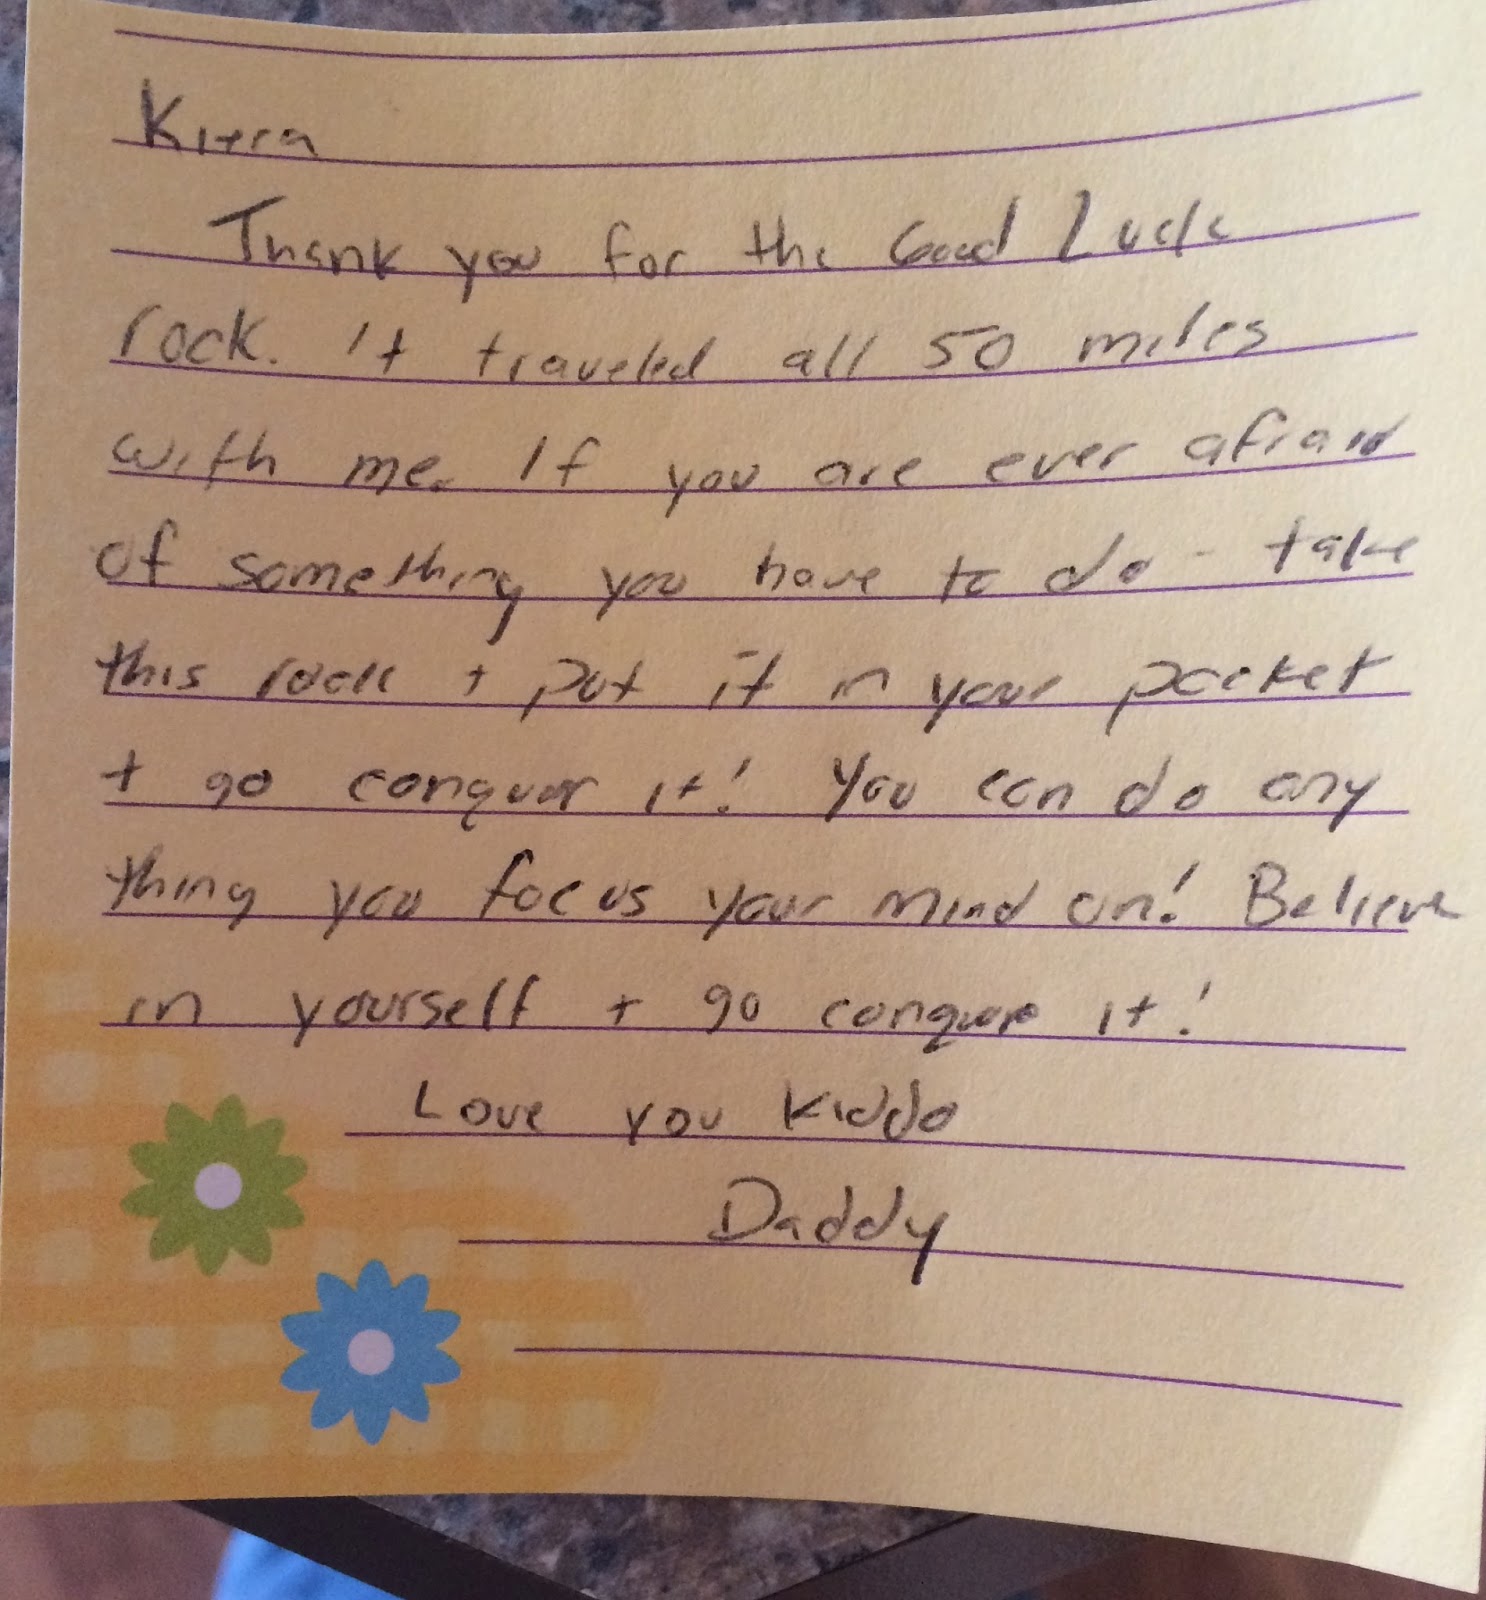 Kiera
Thank you for the Good Luck
rock. It traveled all 50 miles
with me. If you are ever afraid
of something you have to do - take
this rock + put it in your pocket
+ go conquor it! You can do any
thing you focus your mind on! Believe
in yourself + go conquor it!
Love you Kiddo
Daddy